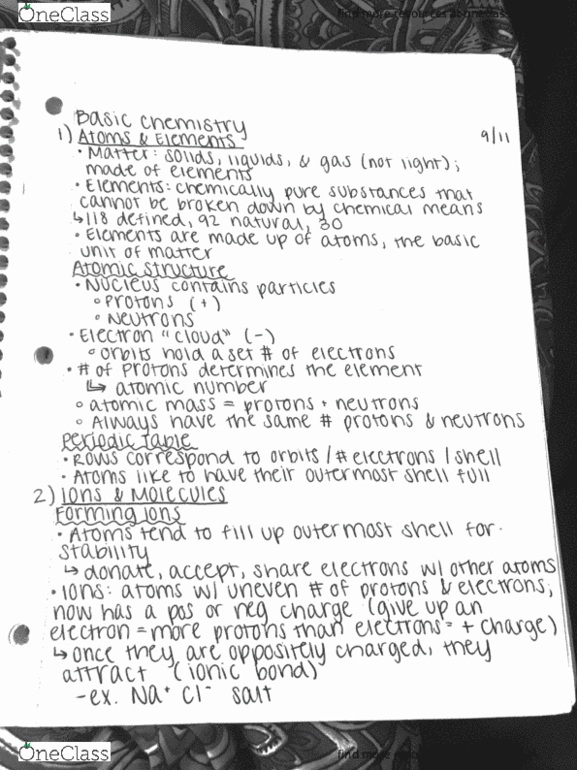 OneClass
find more resources at oneclass
Basic Chemistry
9/11
1) Atoms & Elements
• Matter: solids, liquids, & gas (not light);
made of elements
• Elements: chemically pure substances that
cannot be broken down by chemical means
↳ 118 defined, 92 natural, 30
• Elements are made up of atoms, the basic
unit of matter
Atomic Structure
• Nucleus contains particles
◦ Protons (+)
◦ Neutrons
• Electron "cloud" (-)
◦ orbits hold a set # of electrons
• # of protons determines the element
↳ atomic number
◦ atomic mass = protons + neutrons
◦ Always have the same # protons & neutrons
Periodic Table
• Rows correspond to orbits / # electrons / shell
• Atoms like to have their outermost shell full
2) Ions & Molecules
Forming Ions
• Atoms tend to fill up outermost shell for
stability
↳ donate, accept, share electrons w/ other atoms
• Ions: atoms w/ uneven # of protons & electrons;
now has a pos or neg charge (give up an
electron = more protons than electrons = + charge)
↳ once they are oppositely charged, they
attract (ionic bond)
- ex. Na⁺ Cl⁻ salt
OneClass
find more reso